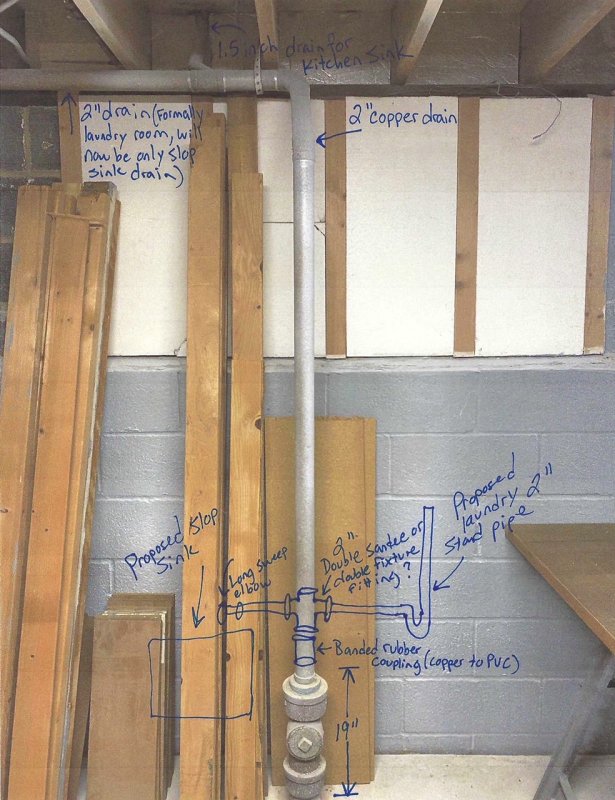 1.5 inch drain for
kitchen sink
2" drain (Formally
laundry room, will
now be only slop
sink drain)
2" copper drain
Proposed Slop
Sink
Long sweep
elbow
2"
Double Santee or
double fixture
fitting?
Proposed
laundry 2"
Stand pipe
Banded rubber
coupling (copper to PVC)
19"